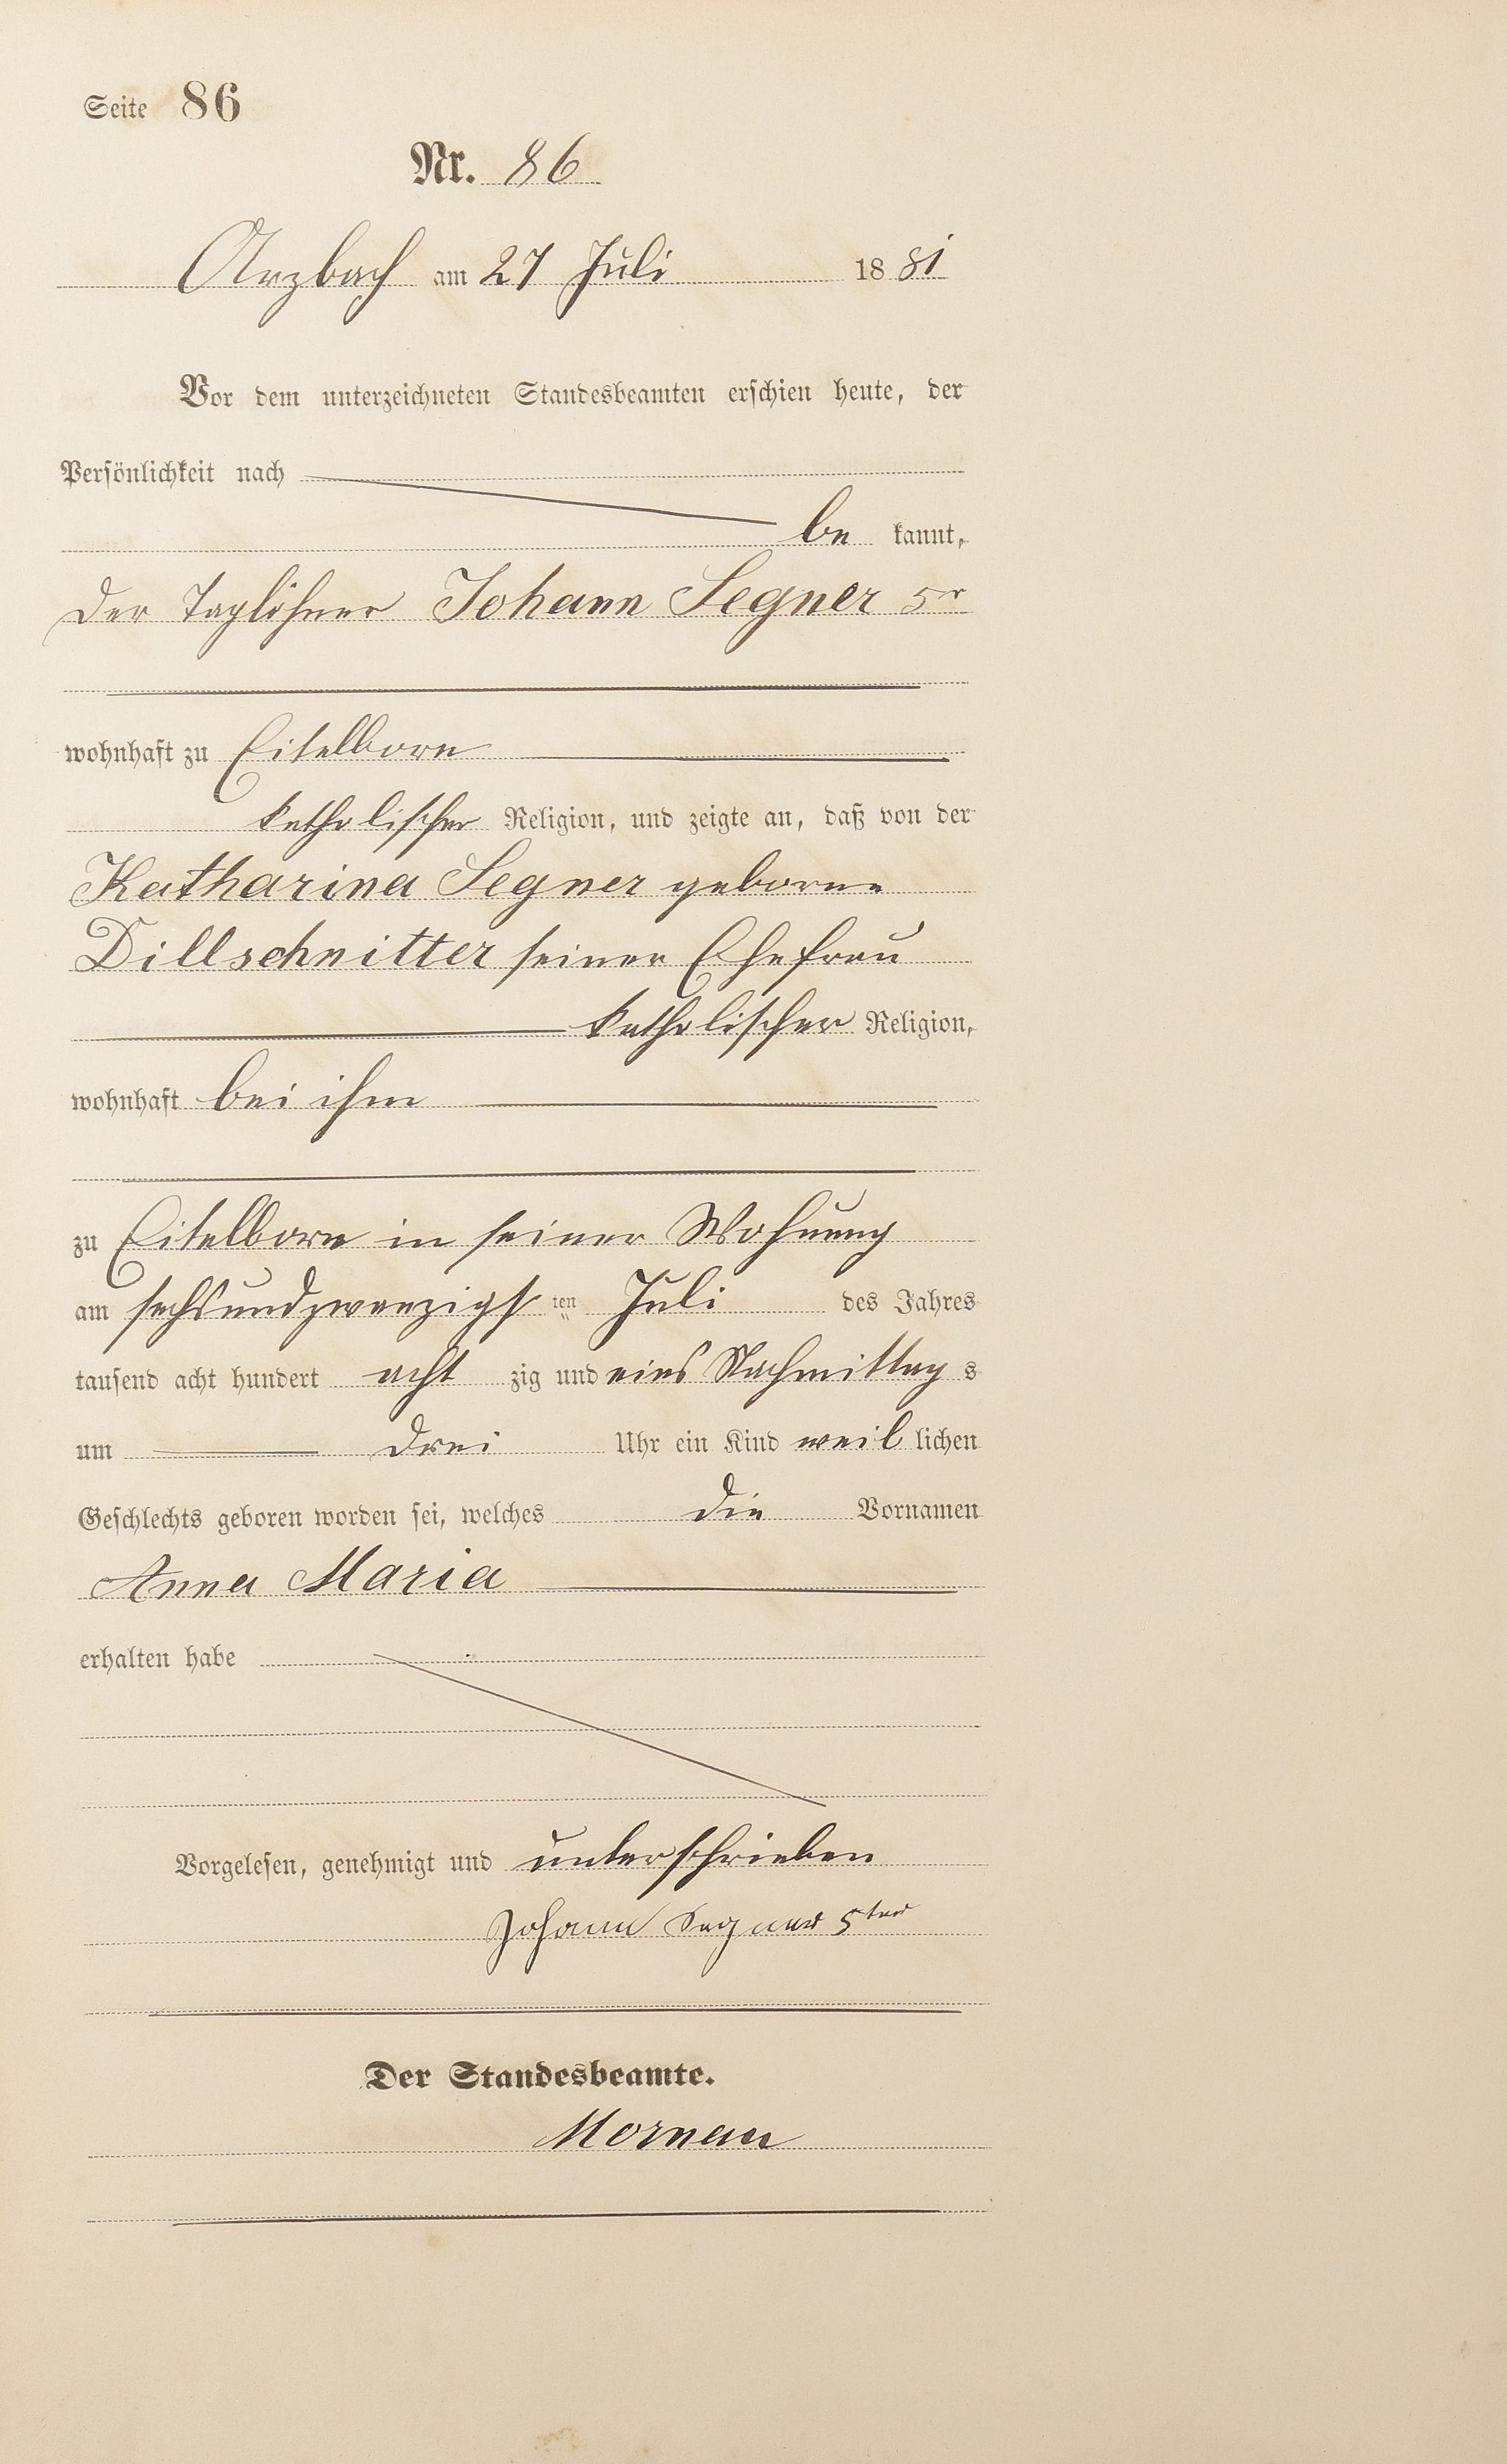 Seite 86
Nr. 86
Arzbach am 27 Juli 1881
Vor dem unterzeichneten Standesbeamten erschien heute, der
Persönlichkeit nach
be kannt,
der Taglöhner Johann Segner 5r
wohnhaft zu Eitelborn
katholischer Religion, und zeigte an, daß von der
Katharina Segner geborne
Dillschnitter seiner Ehefrau
katholischer Religion,
wohnhaft bei ihm
zu Eitelborn in seiner Wohnung
am sechsundzwanzigsten Juli des Jahres
tausend acht hundert acht zig und eins Nachmittag s
um drei Uhr ein Kind weib lichen
Geschlechts geboren worden sei, welches die Vornamen
Anna Maria
erhalten habe
Vorgelesen, genehmigt und unterschrieben
Johann Segner 5ter
Der Standesbeamte.